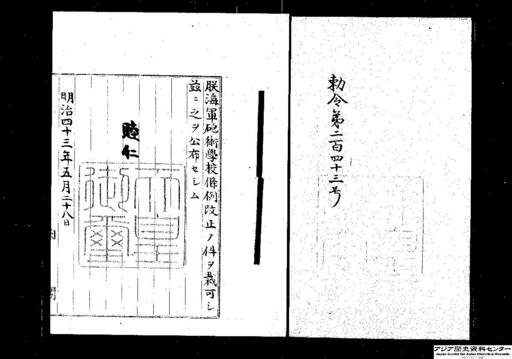 勅令第二百四十三号
朕海軍砲術學校條例改正ノ件ヲ裁可シ
茲ニ之ヲ公布セシム
睦仁
天皇御璽
明治四十三年五月二十八日
内閣
アジア歴史資料センター
Japan Center for Asian Historical Records